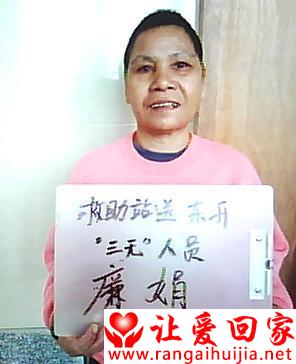 救助站送 东升
"三无"人员
廉娟
让爱回家
www.rangaihuijia.net